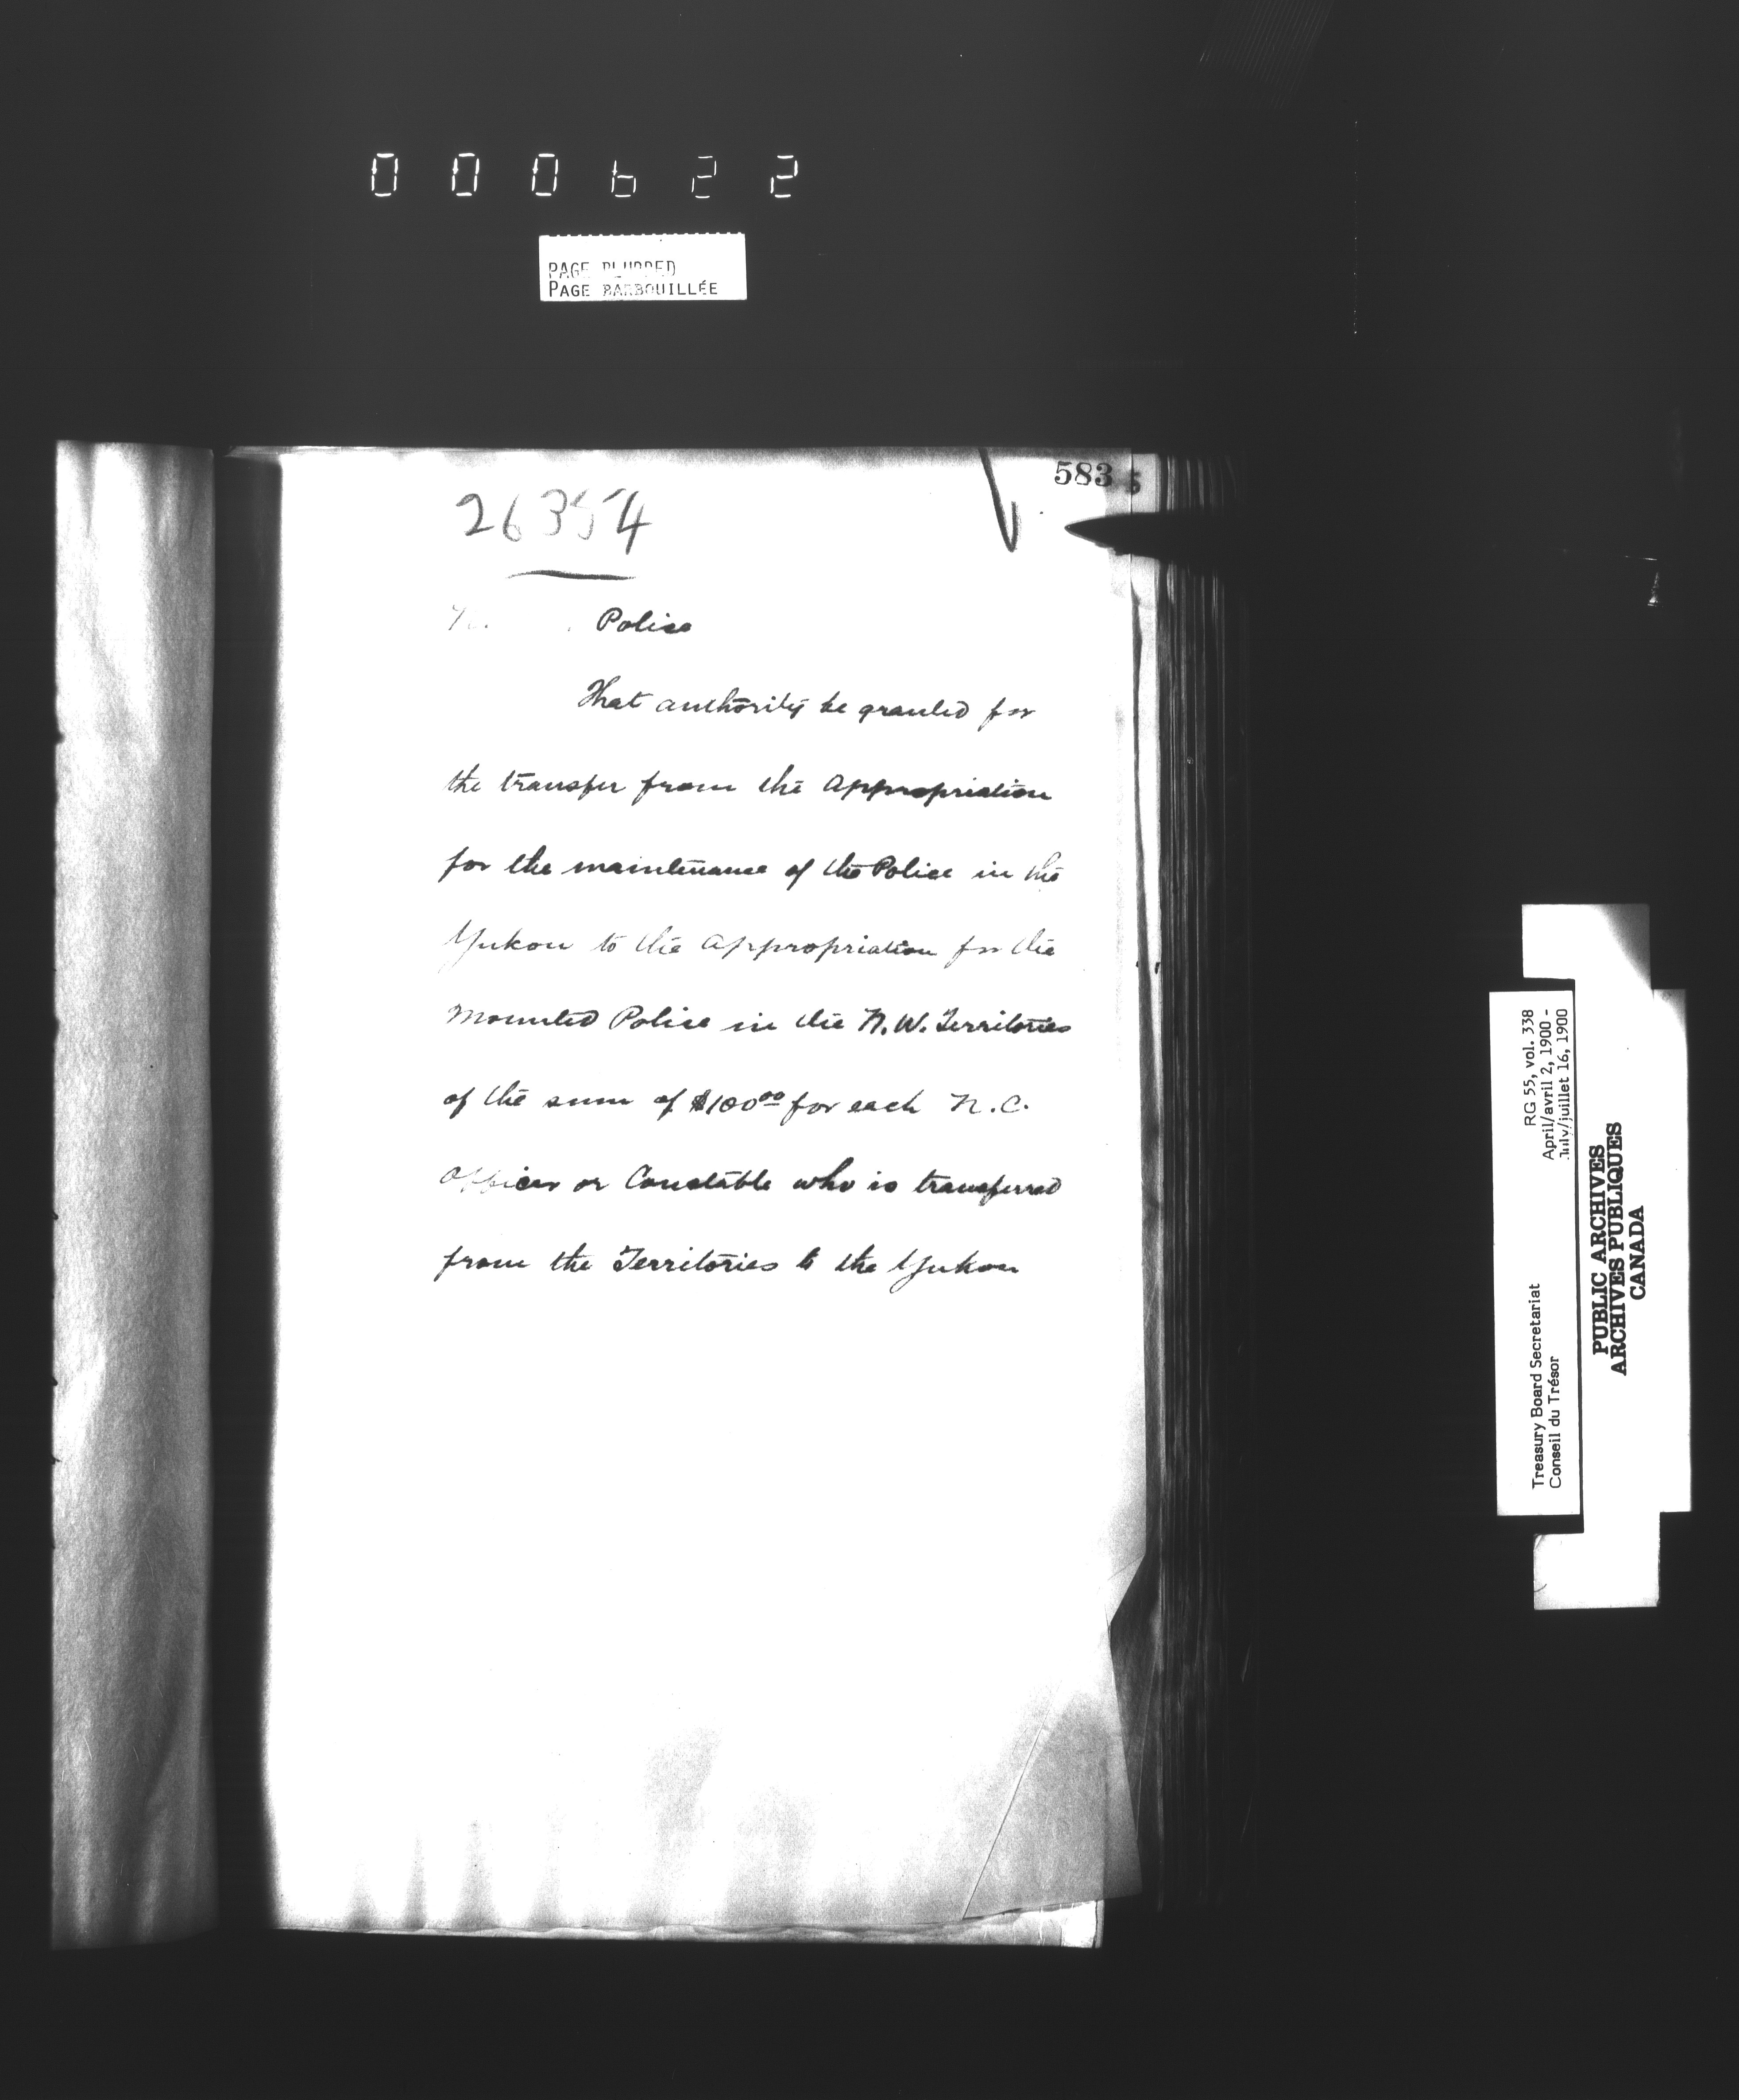 000622
PAGE BLURRED
PAGE BARBOUILLÉE
583
26354
N. Police
That authority be granted for
the transfer from the appropriation
for the maintenance of the Police in the
Yukon to the appropriation for the
Mounted Police in the N.W. Territories
of the sum of $100.00 for each N.C.
Officer or Constable who is transferred
from the Territories to the Yukon
RG 55, vol. 338
April/avril 2, 1900 -
July/juillet 16, 1900
Treasury Board Secretariat
Conseil du Trésor
PUBLIC ARCHIVES
ARCHIVES PUBLIQUES
CANADA